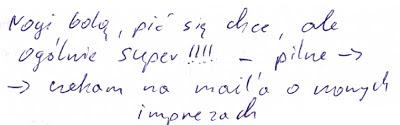 Nogi bolą, pić się chce, ale
ogólnie super !!!! – pilne →
→ czekam na mail'a o nowych
imprezach